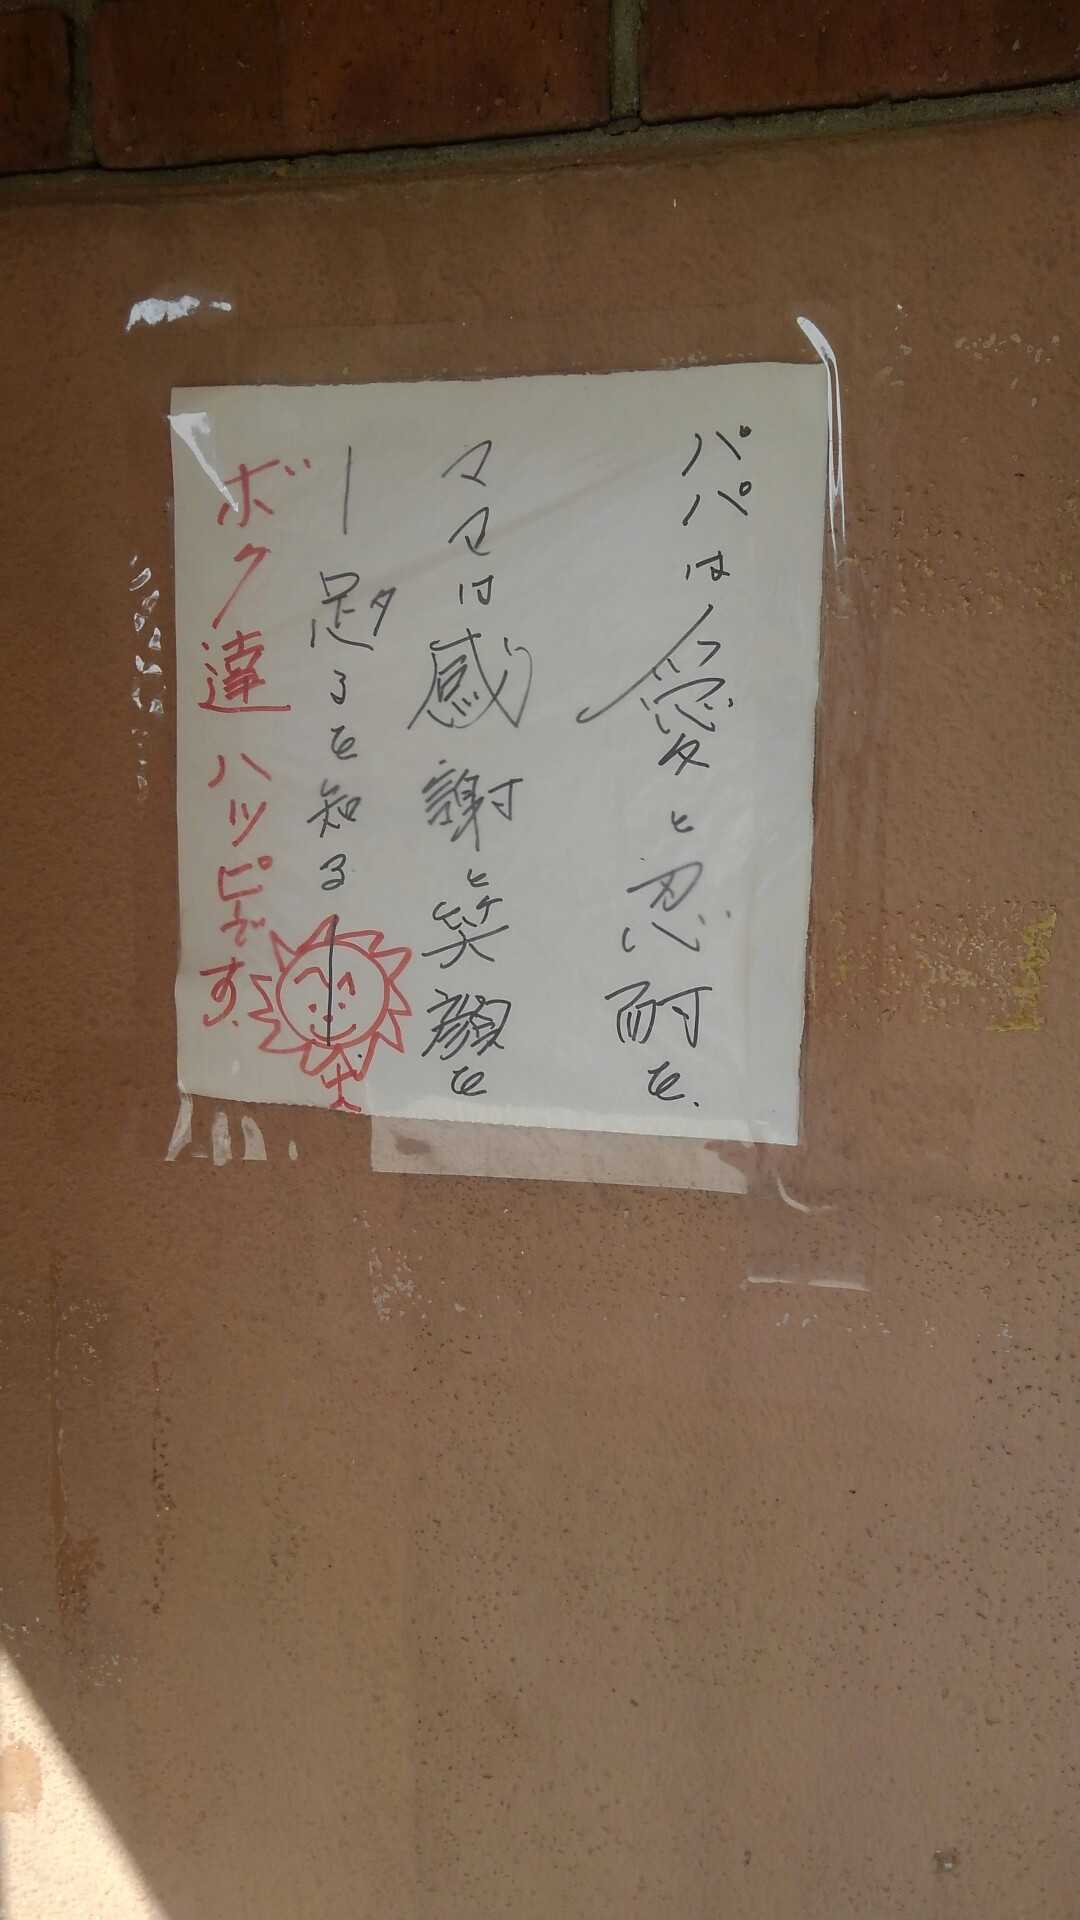 パパは愛と忍耐を.
ママは感謝と笑顔を
ー足タるを知るー
ボク達ハッピです.